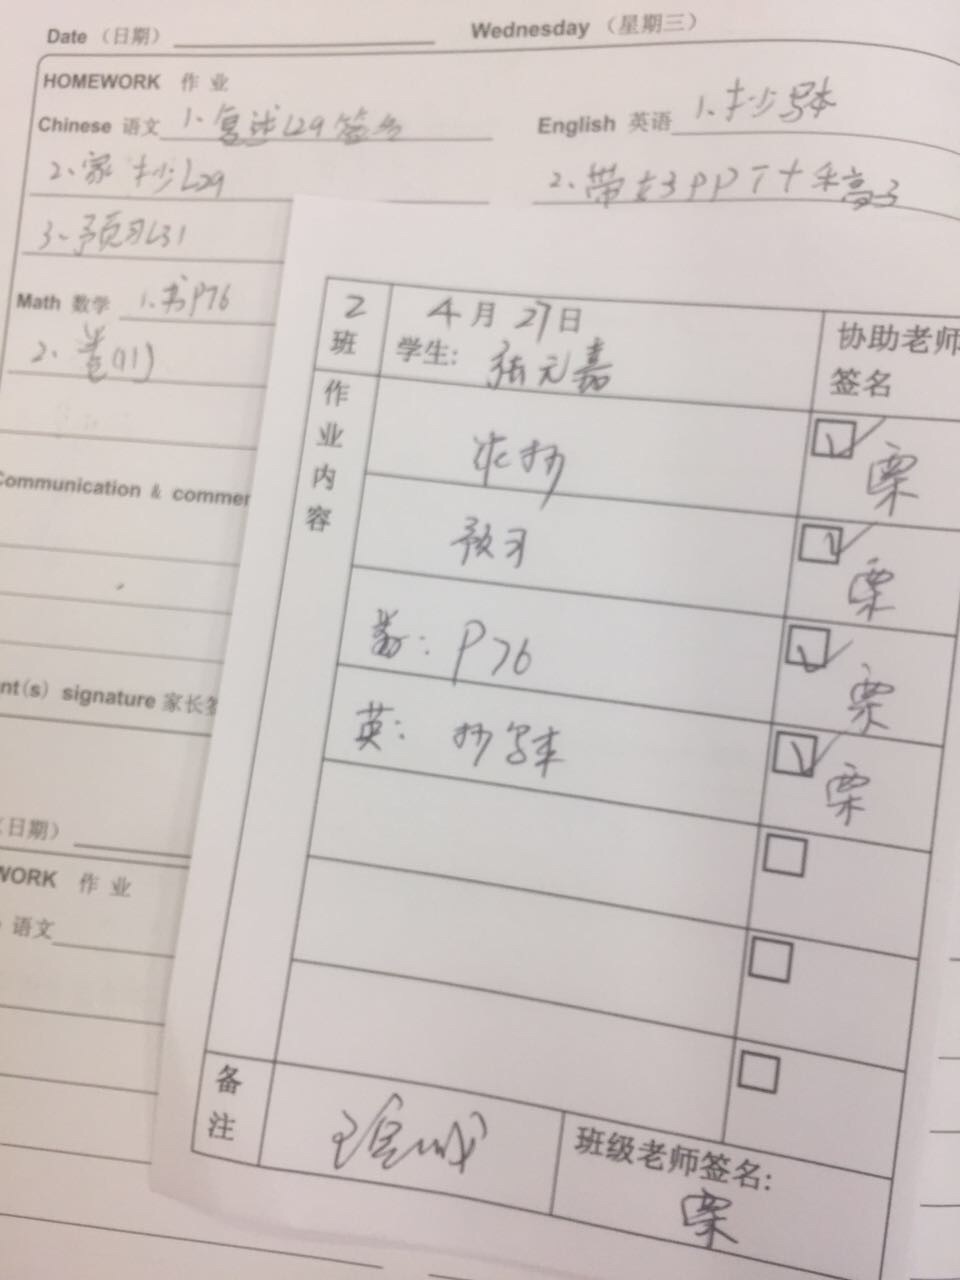 Date （日期）
Wednesday （星期三）
HOMEWORK 作 业
Chinese 语文 1、复述L29签名
English 英语 1、抄写本
2、家抄L29
2、带好3PPT+稿子
3、预习L31
Math 数学 1、书P76
2、卷(11)
Communication & commen
nt(s) signature 家长签
（日期）
WORK 作 业
语文
2班
4月27日
学生: 张元嘉
协助老师签名
作业内容
家抄
栗
预习
栗
数: P76
栗
英: 抄写本
栗
备注
班级老师签名:
栗